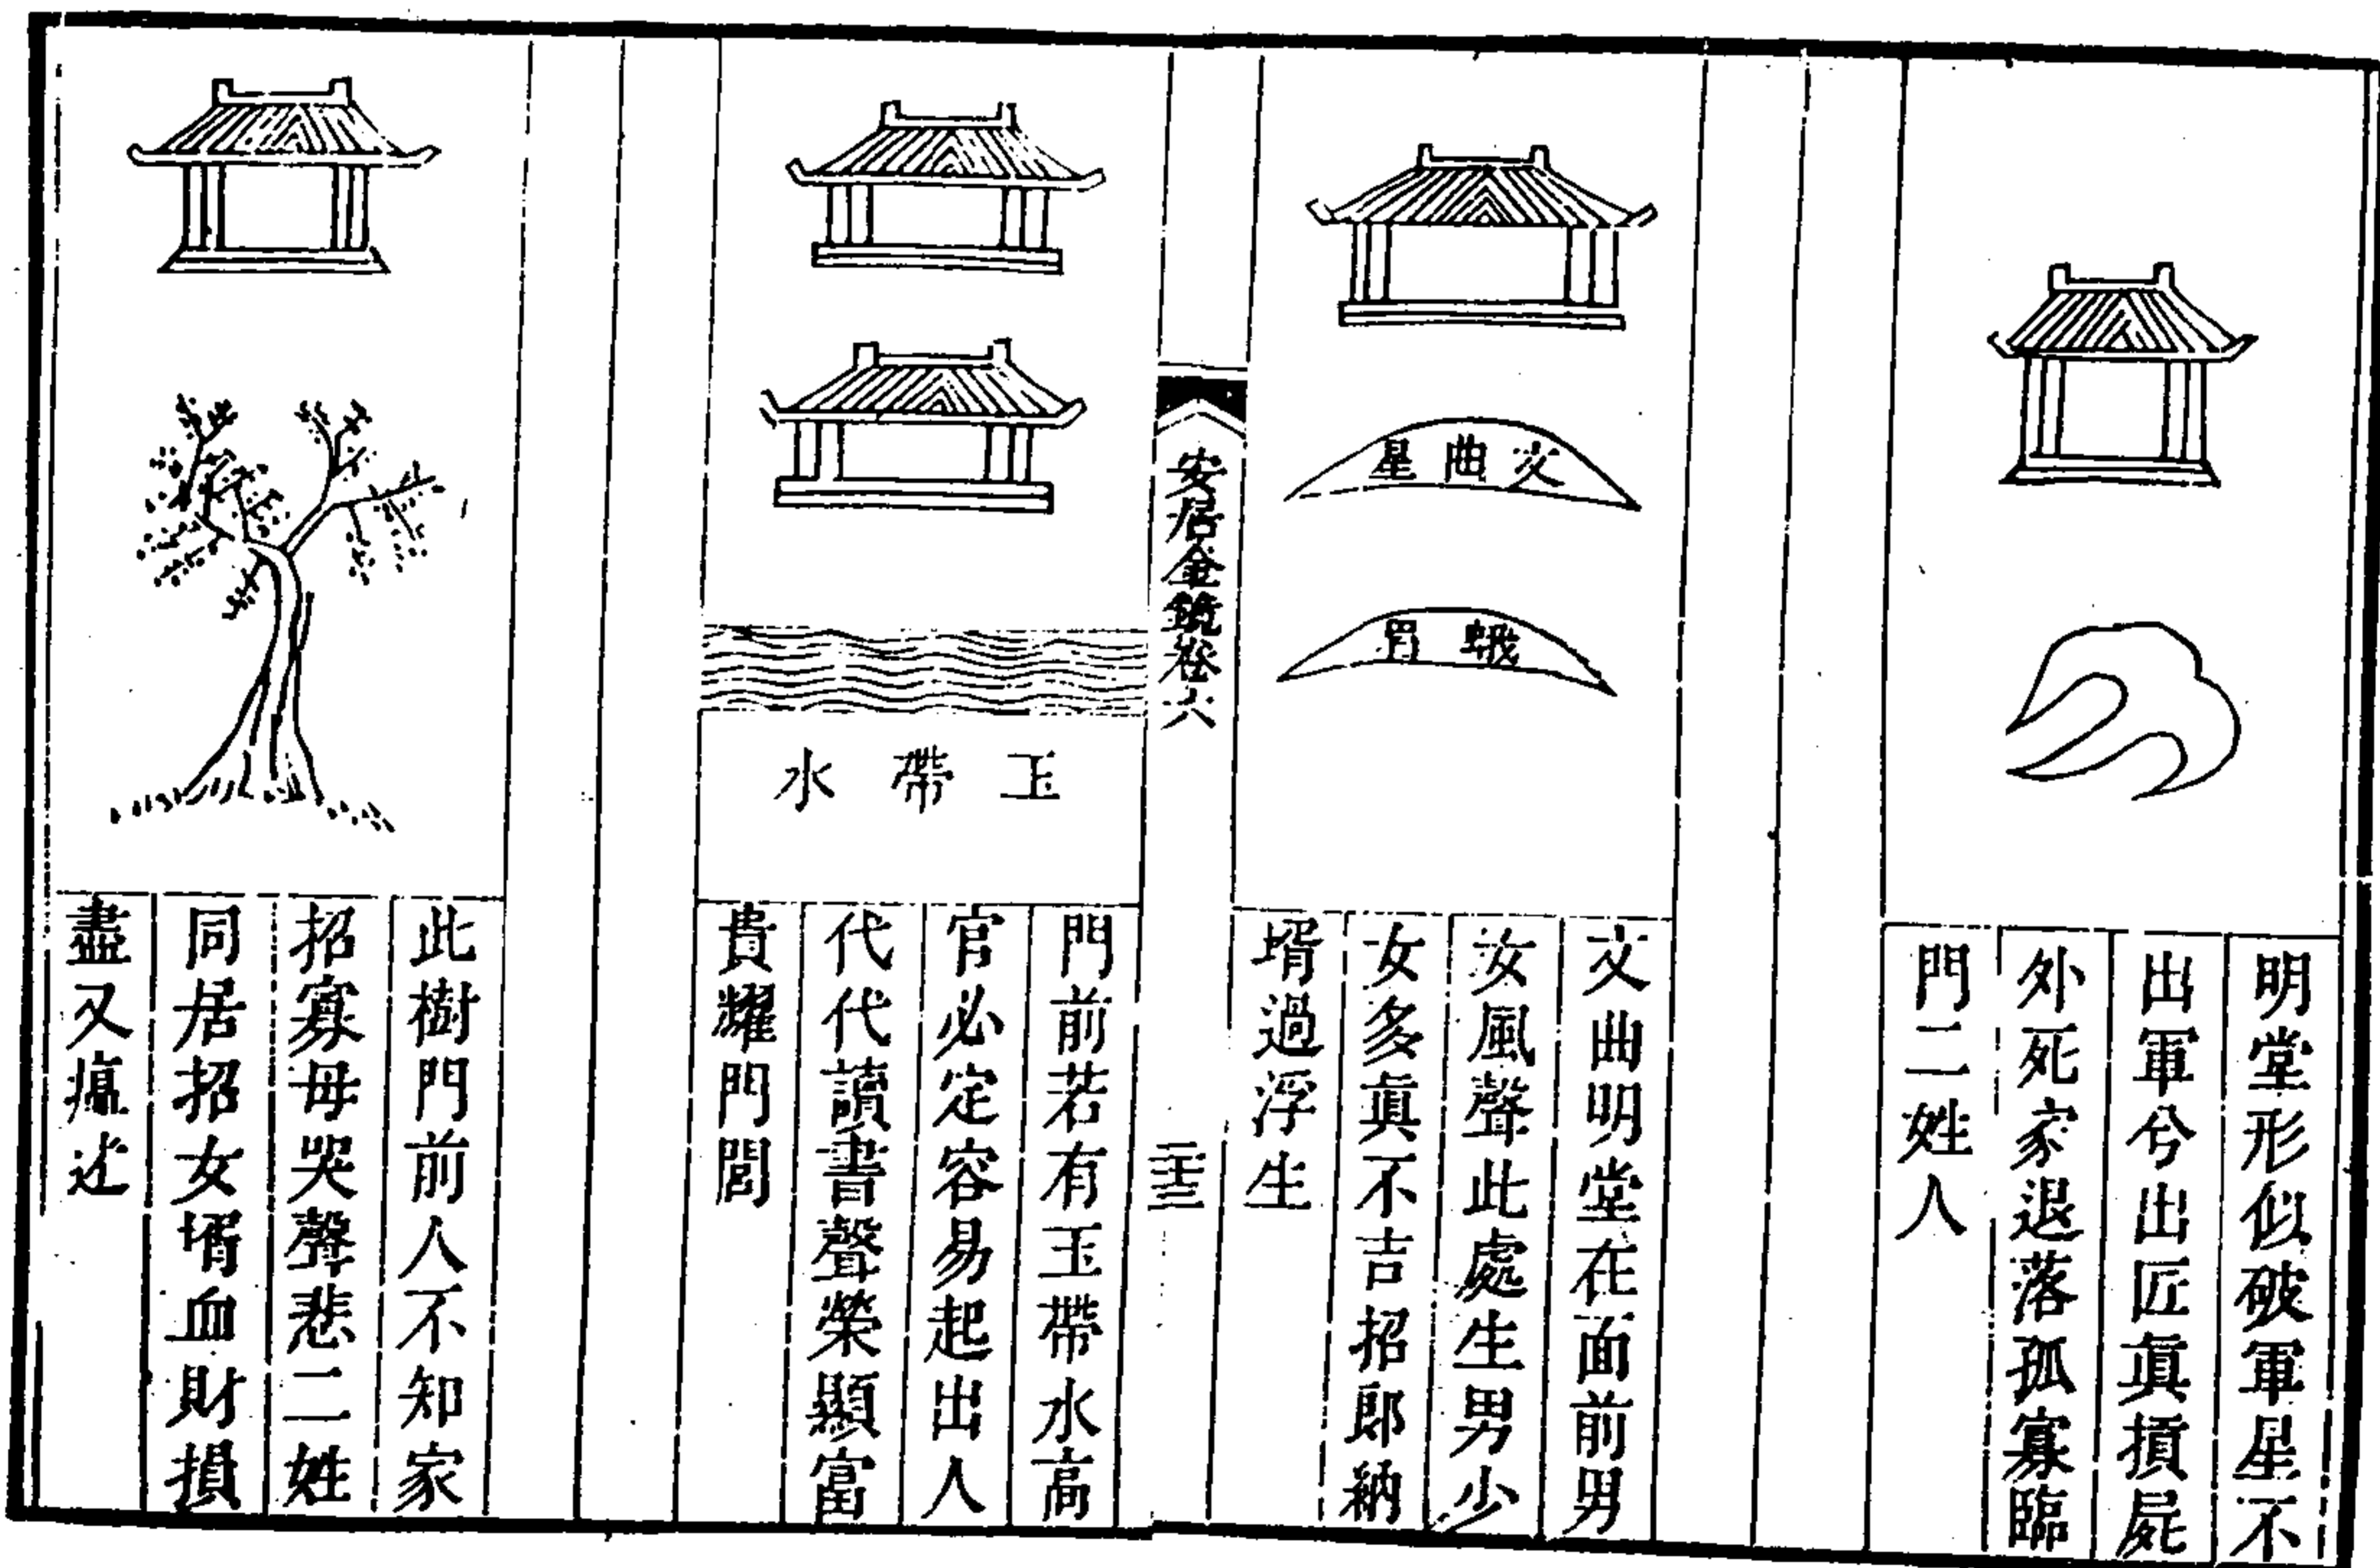 明堂形似破軍星不
出軍兮出匠真損屍
外死家退落孤寡臨
門二姓人
文曲星
蛾眉
文曲明堂在面前男
女風聲此處生男少
女多眞不吉招郎納
壻過浮生
安居金鏡卷六
玉帶水
門前若有玉帶水高
官必定容易起出人
代代讀書聲榮顯富
貴耀門閭
此樹門前人不知家
招寡母哭聲悲二姓
同居招女壻血財損
盡又瘟迷